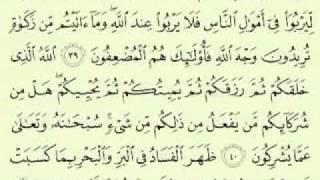 لِّيَرْبُوَا۟ فِىٓ أَمْوَٰلِ ٱلنَّاسِ فَلَا يَرْبُوا۟ عِندَ ٱللَّهِ ۖ وَمَآ ءَاتَيْتُم مِّن زَكَوٰةٍ
تُرِيدُونَ وَجْهَ ٱللَّهِ فَأُو۟لَٰٓئِكَ هُمُ ٱلْمُضْعِفُونَ ٣٩ ٱللَّهُ ٱلَّذِى
خَلَقَكُمْ ثُمَّ رَزَقَكُمْ ثُمَّ يُمِيتُكُمْ ثُمَّ يُحْيِيكُمْ ۖ هَلْ مِن
شُرَكَآئِكُم مَّن يَفْعَلُ مِن ذَٰلِكُم مِّن شَىْءٍ ۚ سُبْحَٰنَهُۥ وَتَعَٰلَىٰ
عَمَّا يُشْرِكُونَ ٤٠ ظَهَرَ ٱلْفَسَادُ فِى ٱلْبَرِّ وَٱلْبَحْرِ بِمَا كَسَبَتْ